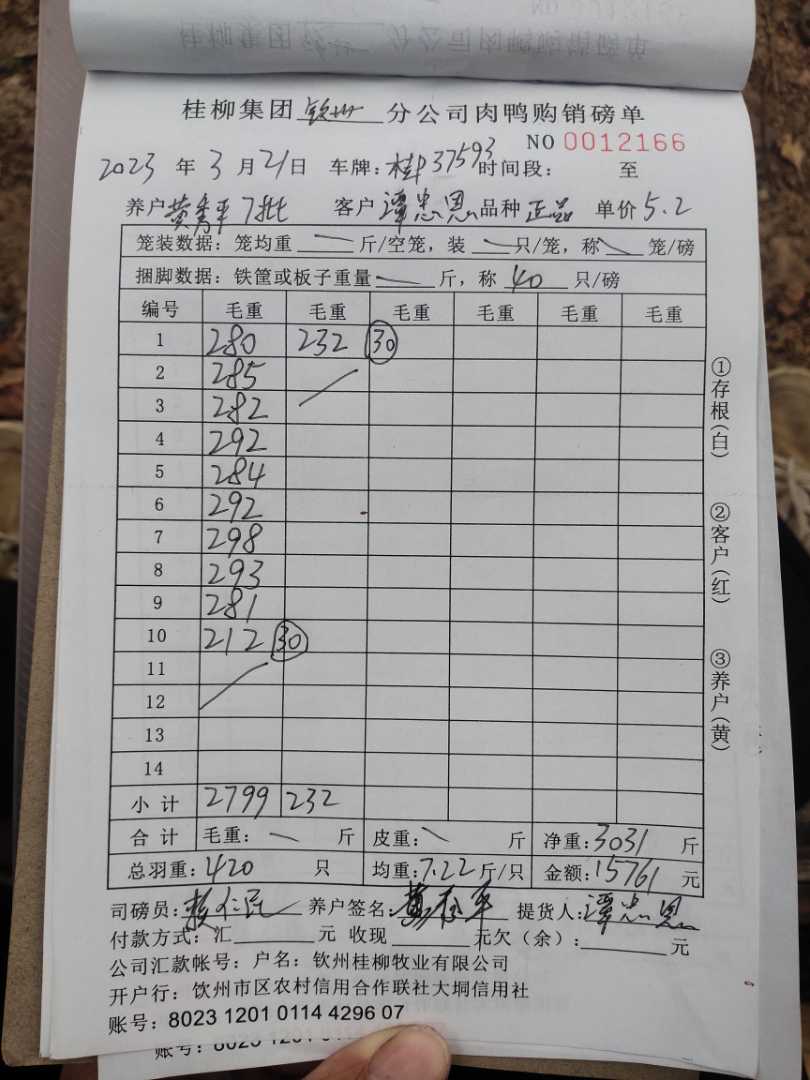 桂柳集团钦州分公司肉鸭购销磅单
NO 0012166
2023年3月21日 车牌:桂P37593时间段: 至
养户黄秀平7批 客户谭忠恩品种正品 单价5.2
笼装数据:笼均重 斤/空笼,装 只/笼,称 笼/磅
捆脚数据:铁筐或板子重量 斤,称 40 只/磅
编号 毛重 毛重 毛重 毛重 毛重 毛重
1 280 232 30
2 285
3 282
4 292
5 284
6 292
7 298
8 293
9 281
10 212 30
11
12
13
14
小计 2799 232
合计 毛重: 斤 皮重: 斤 净重:3031 斤
总羽重:420 只 均重:7.22斤/只 金额:15761 元
司磅员: 养户签名: 提货人:谭忠恩
付款方式:汇 元 收现 元欠(余): 元
公司汇款帐号:户名:钦州桂柳牧业有限公司
开户行:饮州市区农村信用合作联社大垌信用社
账号:8023 1201 0114 4296 07
①存根(白)
②客户(红)
③养户(黄)